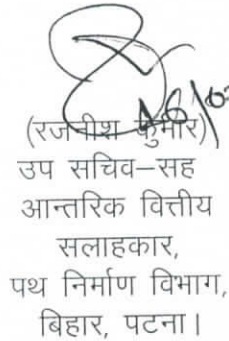 (रजनीश कुमार)
उप सचिव–सह
आन्तरिक वित्तीय
सलाहकार,
पथ निर्माण विभाग,
बिहार, पटना।